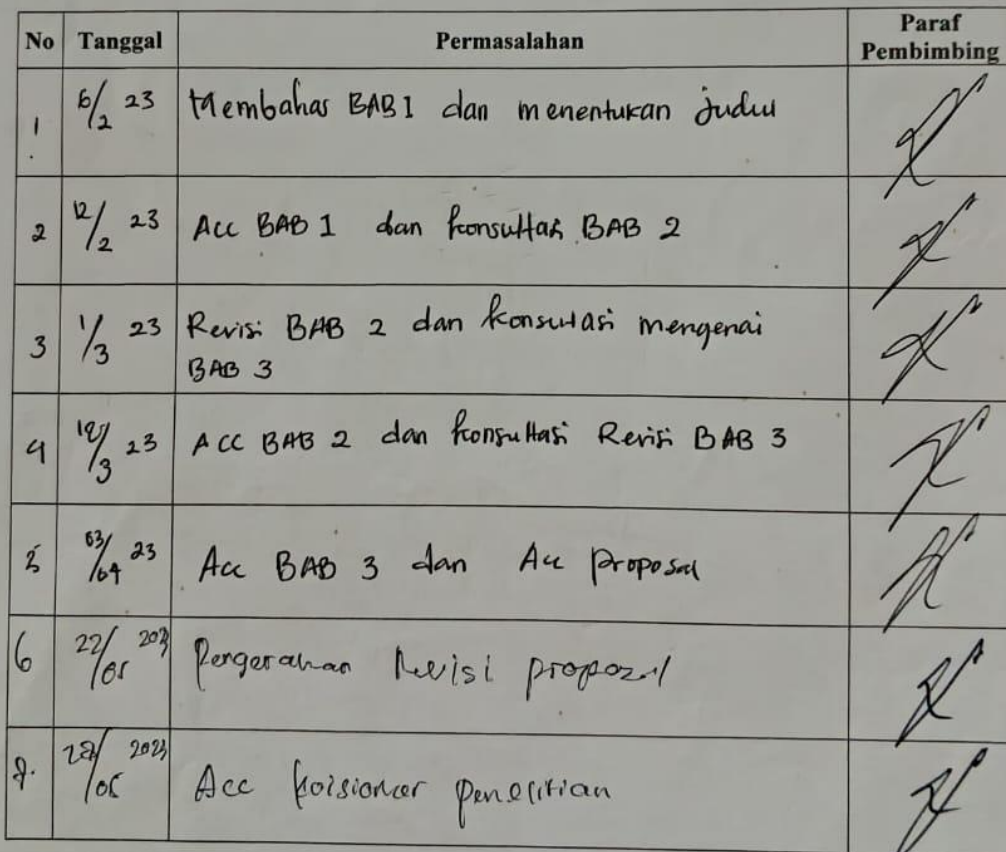 No Tanggal Permasalahan Paraf Pembimbing
1 6/2 23 Membahas BAB 1 dan menentukan judul
2 12/2 23 Acc BAB 1 dan konsultasi BAB 2
3 1/3 23 Revisi BAB 2 dan konsultasi mengenai
BAB 3
4 /3 23 ACC BAB 2 dan konsultasi Revisi BAB 3
5 03/04 23 Acc BAB 3 dan Acc proposal
6 22/05 2023 Revisi proposal
7. /05 2023 Acc koisioner penelitian